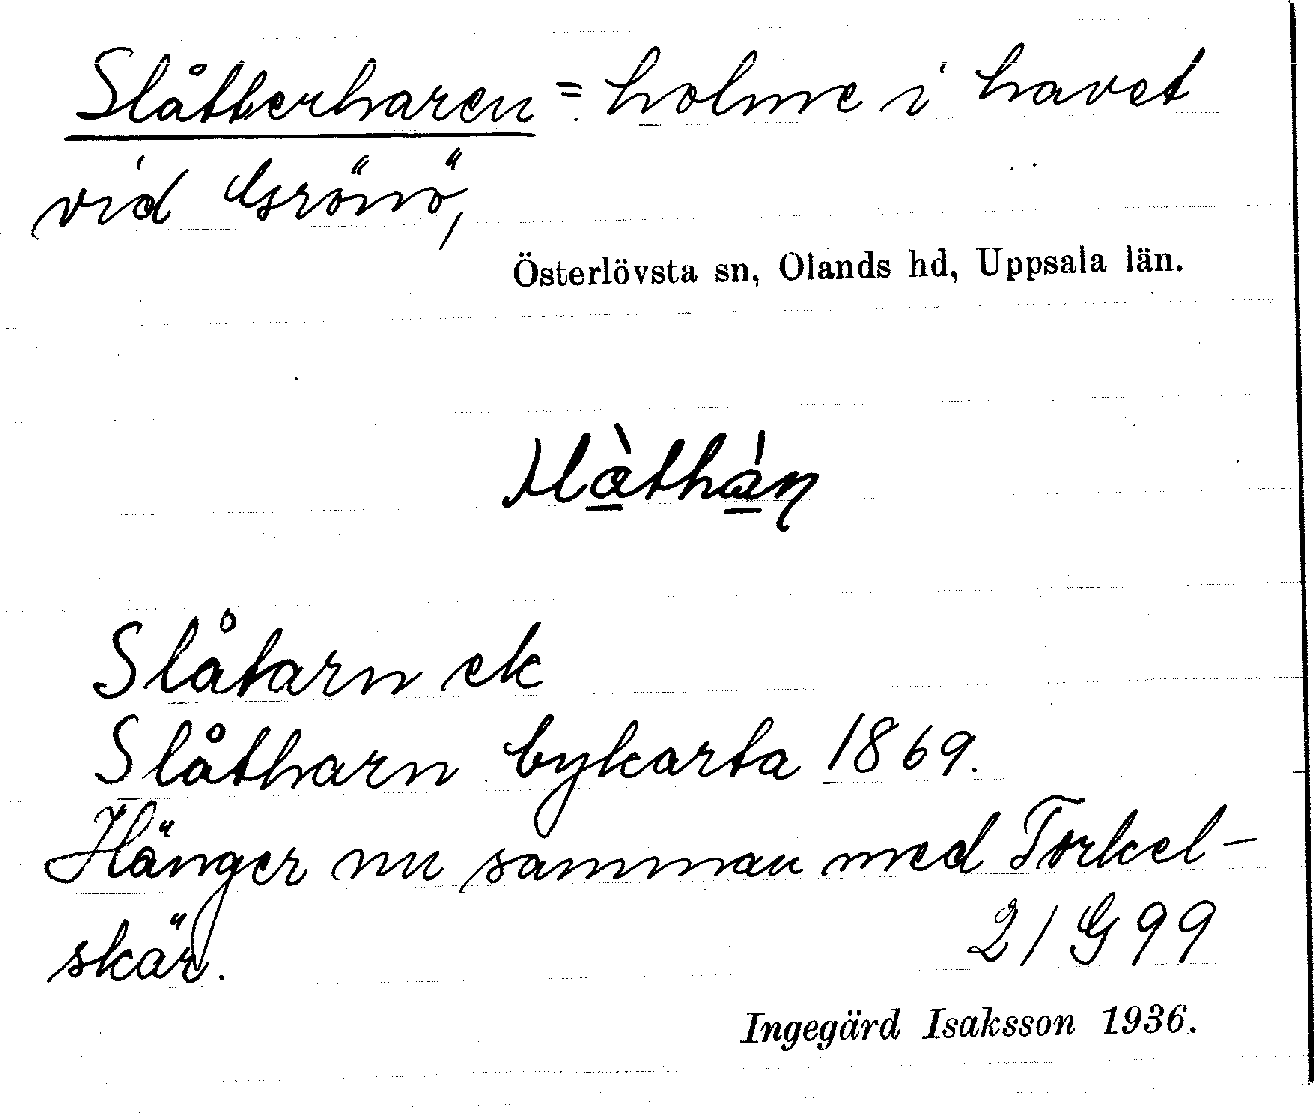 Slåtterharen = holme i havet
vid Grönö,
Österlövsta sn, Olands hd, Uppsala län.
Slåtarn ek
Slåtharn bykarta 1869.
Hänger nu samman med Torkel-
skär.
21 G 99
Ingegärd Isaksson 1936.